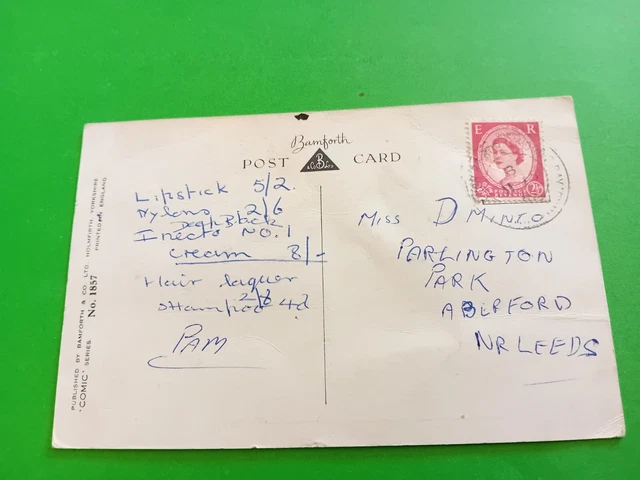 Bamforth
POST CARD
B
& Co Ltd
E R
2½
Lipstick 5/2.
Nylons 2/6
Deep Black
Inecto NO.1
cream 8/-
Hair laquer
2/8
Shampoo 4d
PAM
MISS D MINTO
PARLINGTON
PARK
ABERFORD
NR LEEDS
PUBLISHED BY BAMFORTH & CO LTD. HOLMFIRTH YORKSHIRE
"COMIC" SERIES No. 1857 PRINTED IN ENGLAND